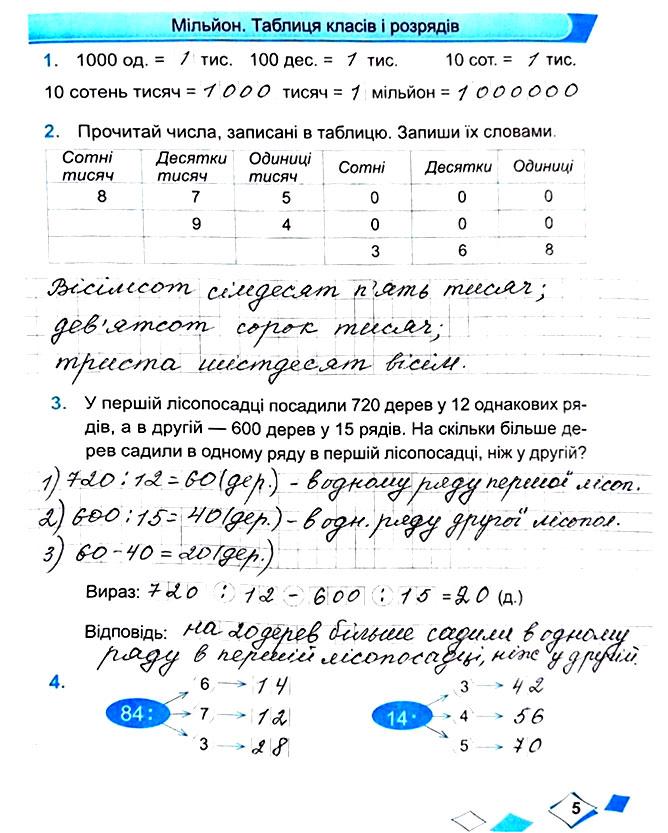 Мільйон. Таблиця класів і розрядів
1. 1000 од. = 1 тис. 100 дес. = 1 тис. 10 сот. = 1 тис.
10 сотень тисяч = 1000 тисяч = 1 мільйон = 1000000
2. Прочитай числа, записані в таблицю. Запиши їх словами.
Сотні тисяч Десятки тисяч Одиниці тисяч Сотні Десятки Одиниці
8 7 5 0 0 0
9 4 0 0 0
3 6 8
Вісімсот сімдесят п'ять тисяч;
дев'ятсот сорок тисяч;
триста шістдесят вісім.
3. У першій лісопосадці посадили 720 дерев у 12 однакових ря-
дів, а в другій — 600 дерев у 15 рядів. На скільки більше де-
рев садили в одному ряду в першій лісопосадці, ніж у другій?
1) 720 : 12 = 60 (дер.) - в одному ряду першої лісоп.
2) 600 : 15 = 40 (дер.) - в одн. ряду другої лісопос.
3) 60 - 40 = 20 (дер.)
Вираз: 720 : 12 - 600 : 15 = 20 (д.)
Відповідь: на 20 дерев більше садили в одному
ряду в першій лісопосадці, ніж у другій.
4.
84 : 6 → 14
7 → 12
3 → 28
14 · 3 → 42
4 → 56
5 → 70
5